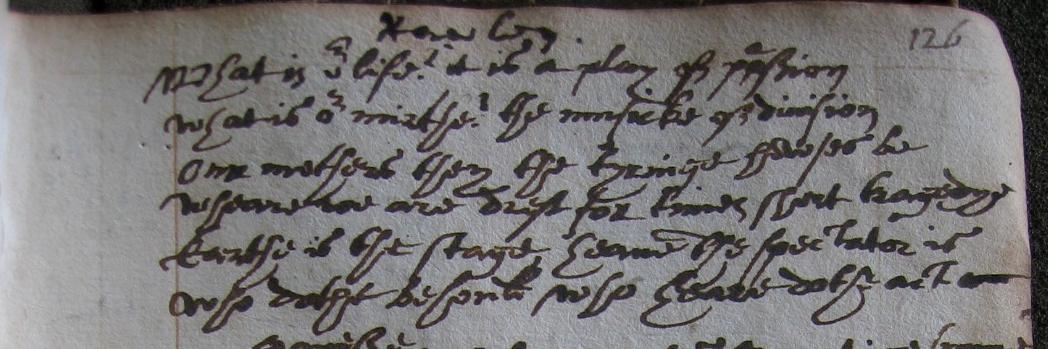 126
What is or life? it is a play of passion
what is or mirthe? the musicke of division
Our mothers they the tyringe howses be
wheare we are drest for times short tragedye
Earthe is the stage heaven the spectator is
who dothe behould who heare doth act